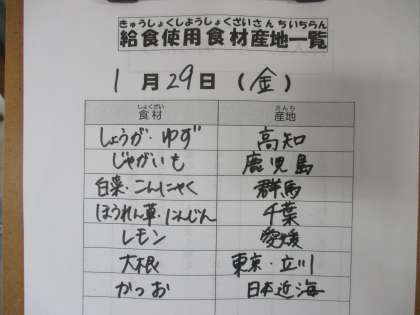 きゅうしょくしようしょくざいさんちいちらん
給食使用食材産地一覧
1月29日(金)
しょくざい さんち
食材 産地
しょうが・ゆず 高知
じゃがいも 鹿児島
白菜・こんにゃく 群馬
ほうれん草・にんじん 千葉
レモン 愛媛
大根 東京・立川
かつお 日本近海